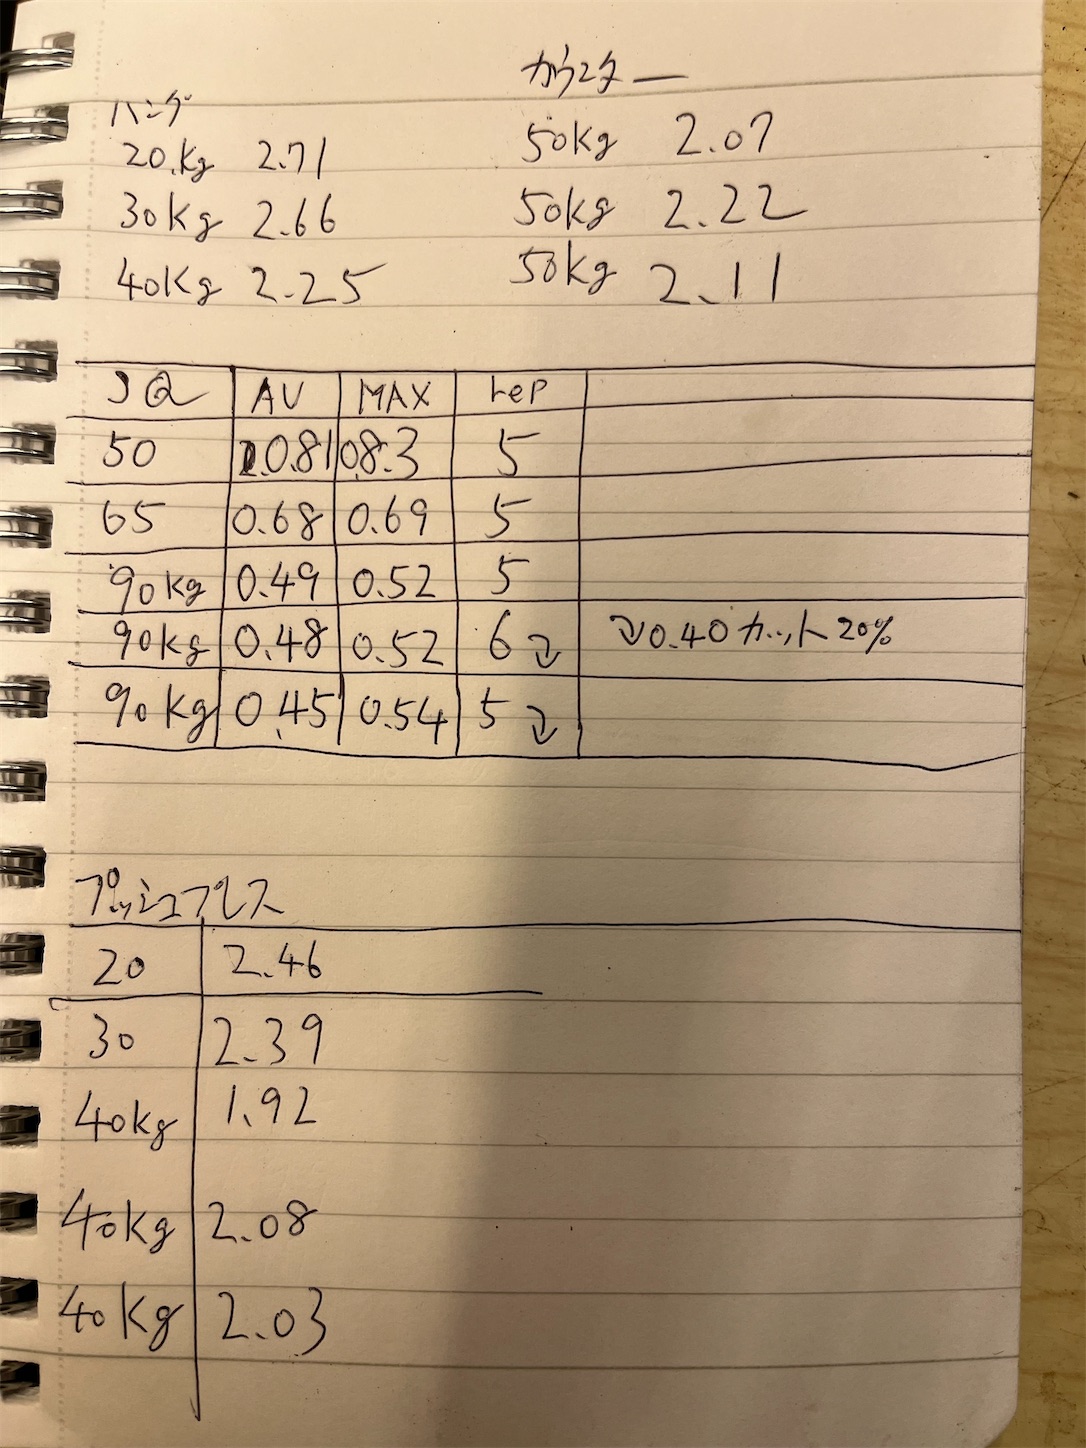 ハング
20.kg 2.71
30kg 2.66
40kg 2.25
カウンター
50kg 2.07
50kg 2.22
50kg 2.11
SQ AV MAX rep
50 0.81 08.3 5
65 0.68 0.69 5
90kg 0.49 0.52 5
90kg 0.48 0.52 6↓ ↓0.40カット20%
90kg 0.45 0.54 5↓
プッシュプレス
20 2.46
30 2.39
40kg 1.92
40kg 2.08
40kg 2.03